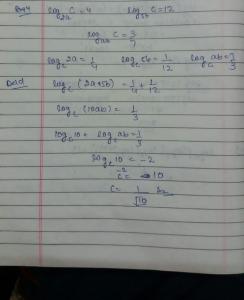 log_{2a} C = 4 log_{5b} C = 12
log_{ab} C = 3/7
log_c 2a = 1/4 log_c 5b = 1/12 log_c ab = 7/3
log_c (2a×5b) = 1/4 + 1/12
log_c (10ab) = 1/3
log_c 10 + log_c ab = 1/3
log_c 10 = -2
c^{-2} = 10
C = 1/√10